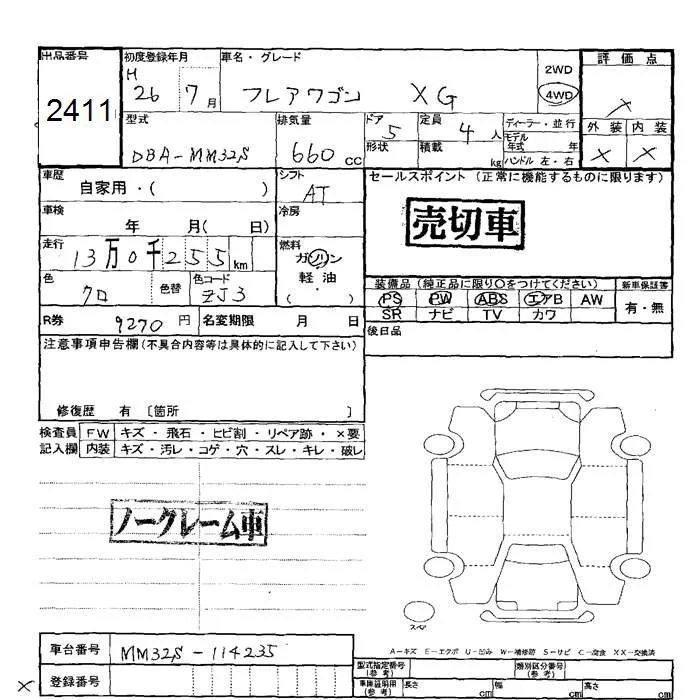 出品番号 初度登録年月 車名・グレード 2WD 評価点
2411 H 26 7月 フレアワゴン XG 4WD ×
型式 排気量 ドア 5 定員 4人 ディーラー・並行 外装 内装
DBA-MM32S 660cc 形状 積載 kg モデル年式 年 × ×
ハンドル 左・右
車歴 自家用・( ) シフト AT セールスポイント (正常に機能するものに限ります)
車検 年 月( 日) 冷房 売切車
走行 13万0千255km 燃料 ガソリン
軽油
( ・ )
色 クロ 色替 色コード ZJ3 装備品 (純正品に限り○をつけてください) 新車保証書
PS PW ABS エアB AW 有・無
SR ナビ TV カワ
R券 9270円 名変期限 月 日 後日品
注意事項申告欄(不具合内容等は具体的に記入して下さい)
修復歴 有 [箇所 ]
検査員 FW キズ・飛石・ヒビ割・リペア跡・×要
記入欄 内装 キズ・汚レ・コゲ・穴・スレ・キレ・破レ
ノークレーム車
スペア
車台番号 MM32S-114235 A-キズ E-エクボ U-凹み W-補修跡 S-サビ C-腐食 XX-交換済
登録番号 型式指定番号(参考) 類別区分番号(参考)
× 車庫証明用(参考) 長さ cm 幅 cm 高さ cm